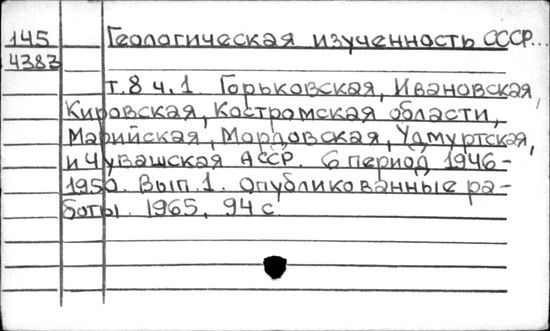 145 Геологическая изученность СССР...
4383
т. 8 ч. 1. Горьковская, Ивановская,
Кировская, Костромская области,
Марийская, Мордовская, Удмуртская,
и Чувашская АССР. G период 1946-
1950. Вып. 1. Опубликованные ра-
боты. 1965. 94 с.